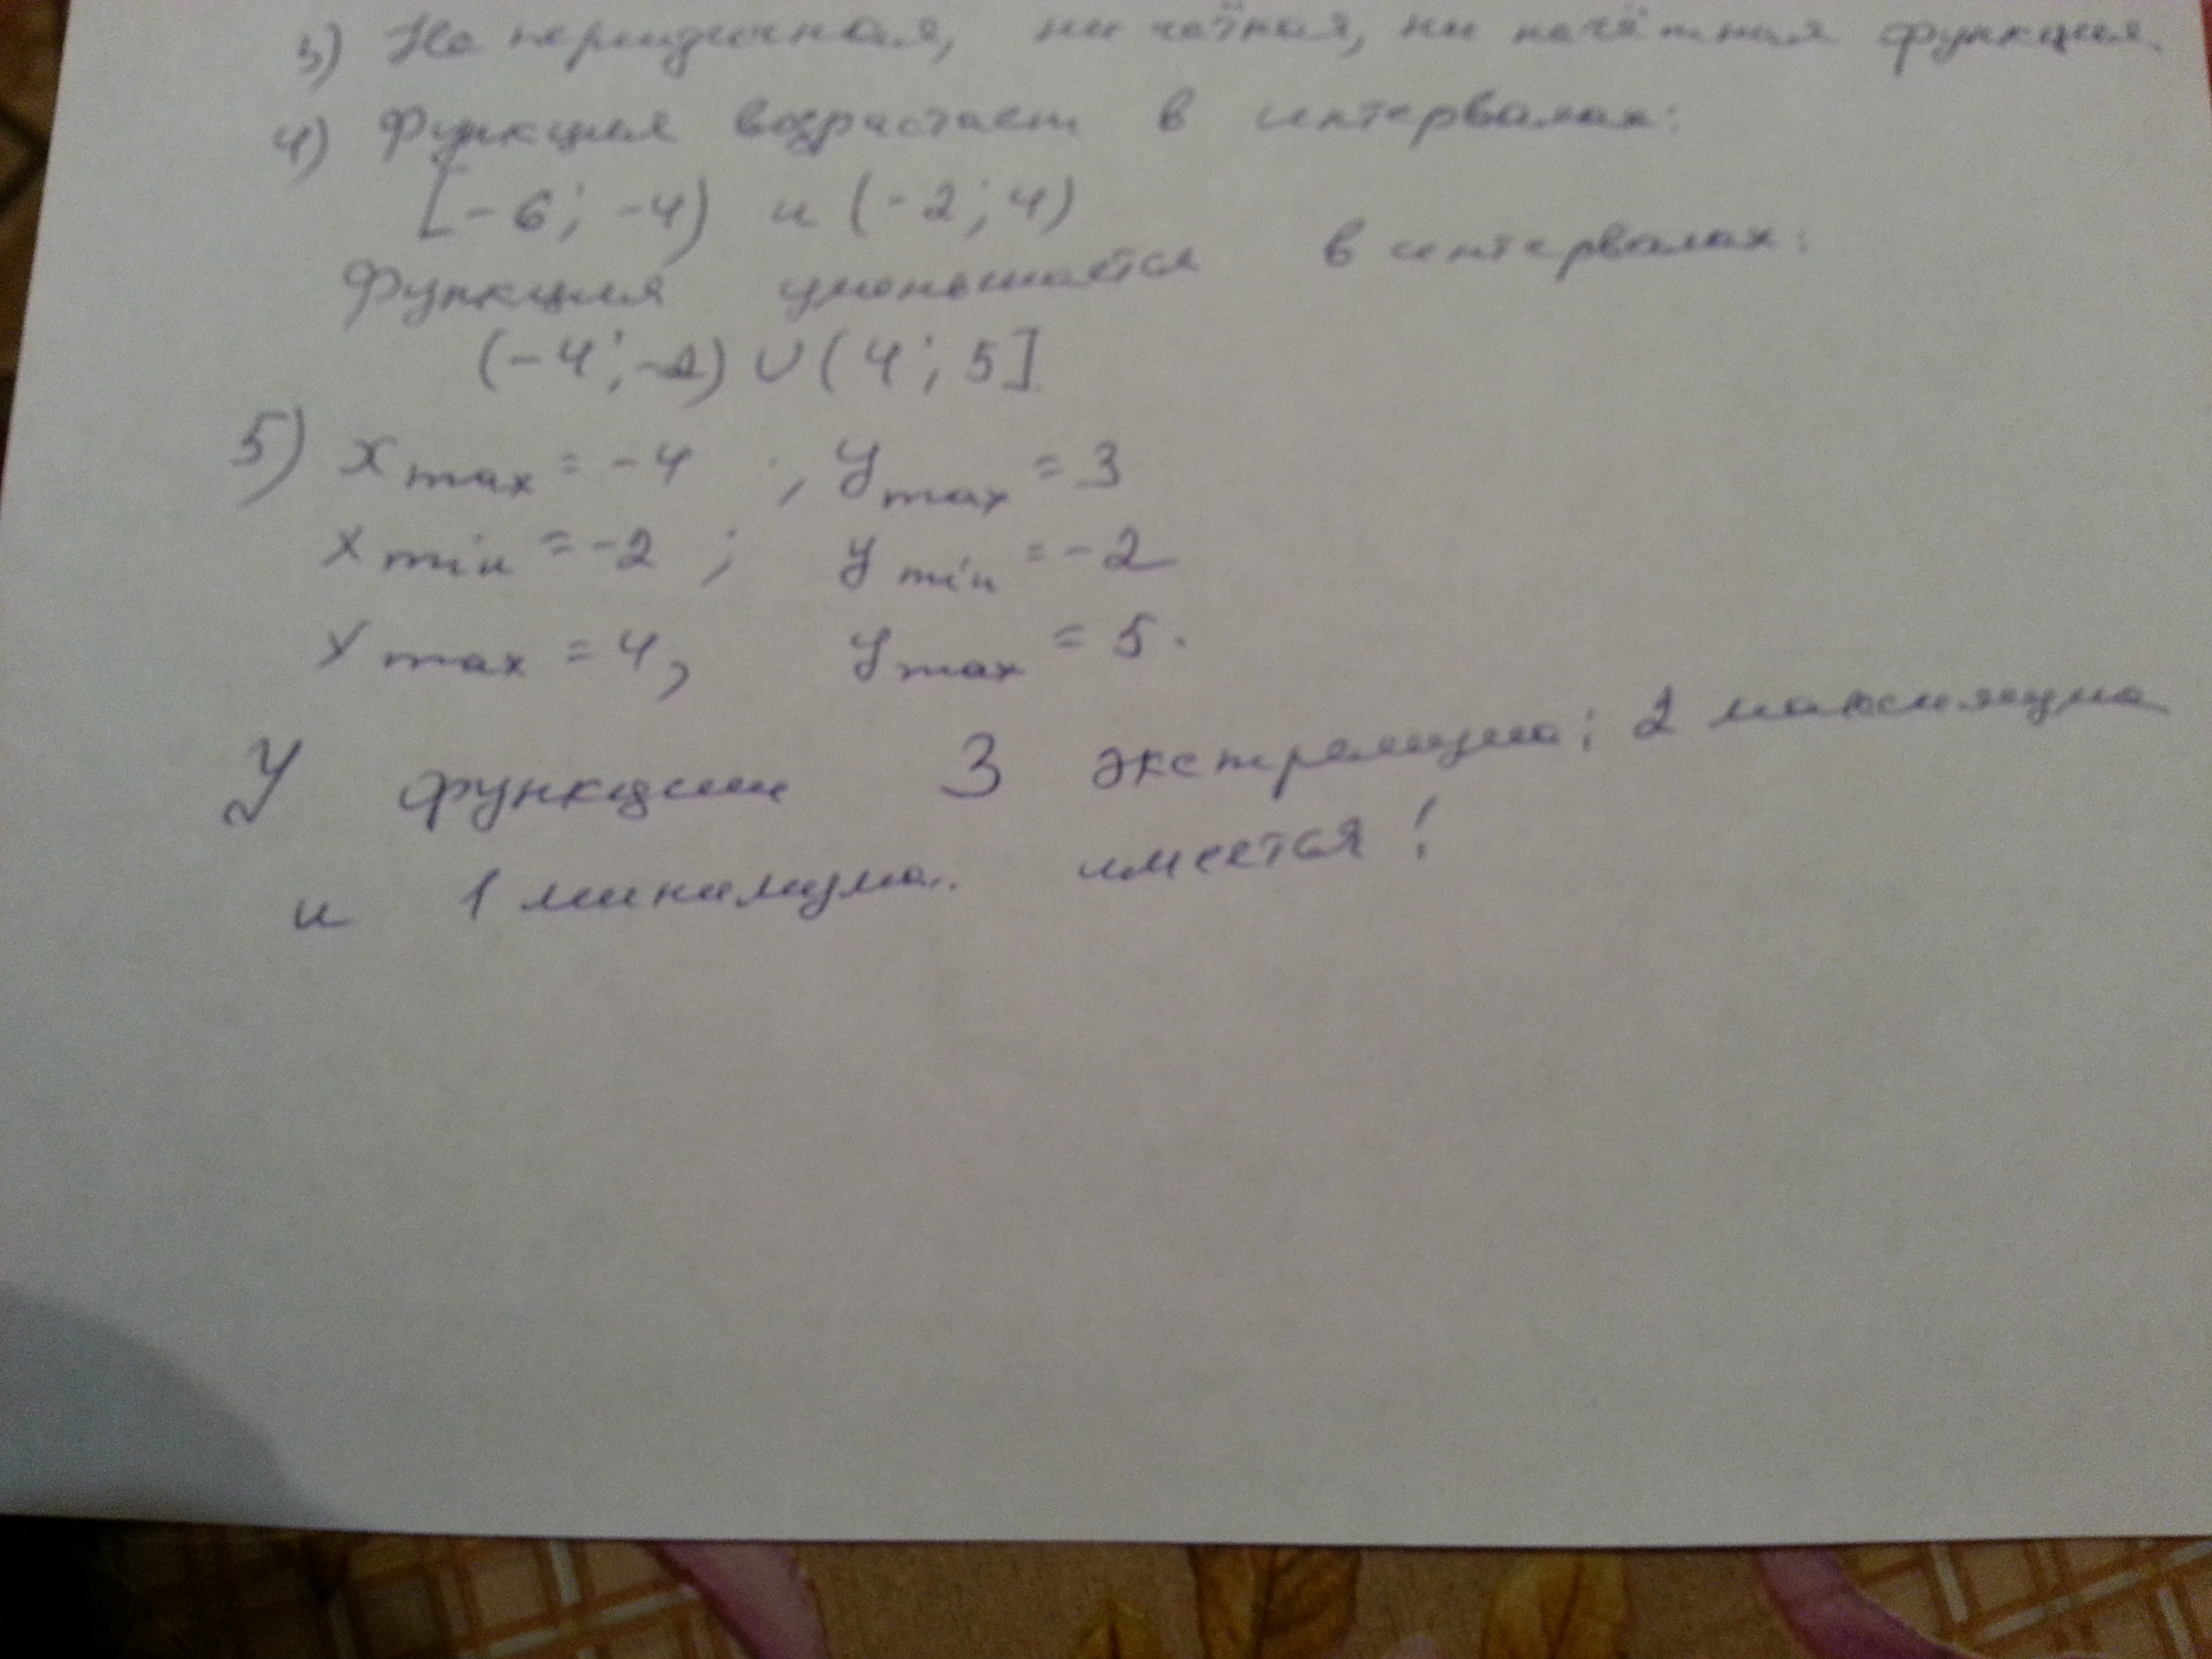 3) Не периодичная, ни чётная, ни нечётная функция.
4) Функция возрастает в интервалах:
[-6; -4) и (-2; 4)
Функция уменьшается в интервалах:
(-4; -2) ∪ (4; 5]
5) x max = -4 ; y max = 3
x min = -2 ; y min = -2
x max = 4, y max = 5.
У функции 3 экстремума; 2 максимума
и 1 минимума. имеется!